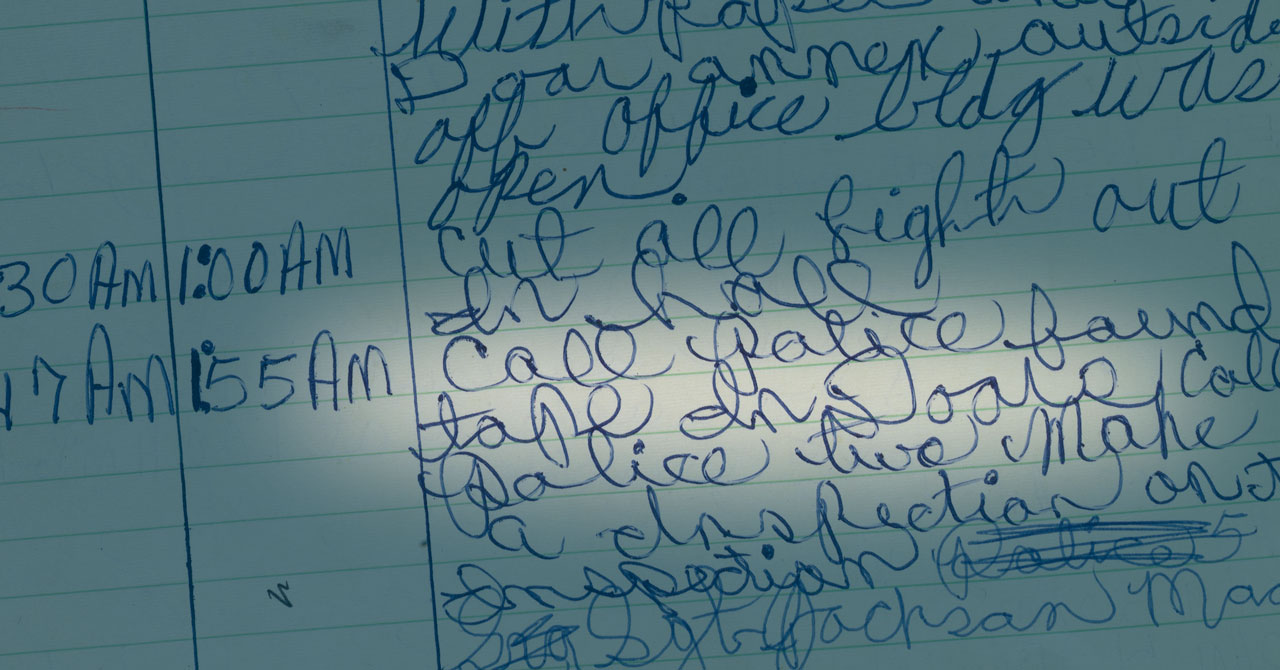 With
Doar annex, outside
off office bldg was
open.
30AM 1:00AM Cut all light out
In hall
17AM 1:55AM Call Police found
tape In Doare Call
Police two Make
a Inspection
Inspection Police 5
Sgt Jackson